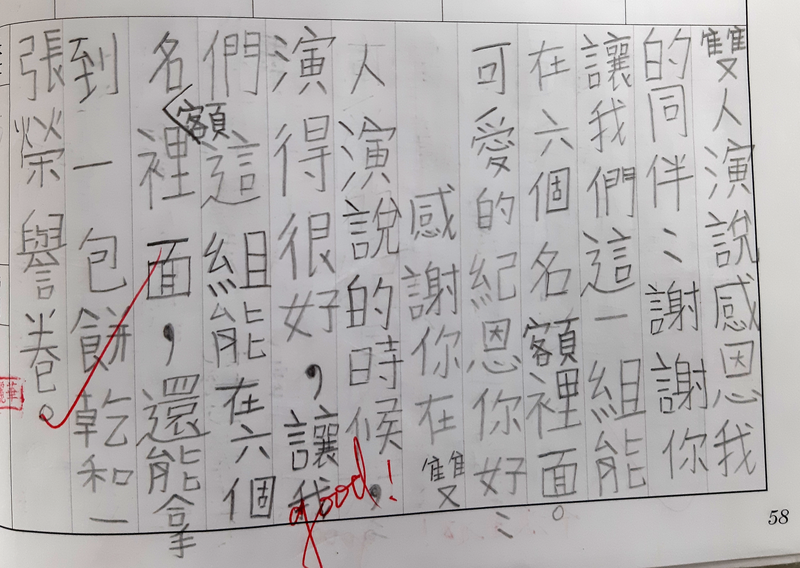 雙人演說感恩我
的同伴：謝謝你
讓我們這一組能
在六個名額裡面。
可愛的紀恩你好：
感謝你在雙
人演說的時候，
演得很好，讓我
們這組能在六個
名額裡面，還能拿
到一包餅乾和一
張榮譽卷。
good!
58